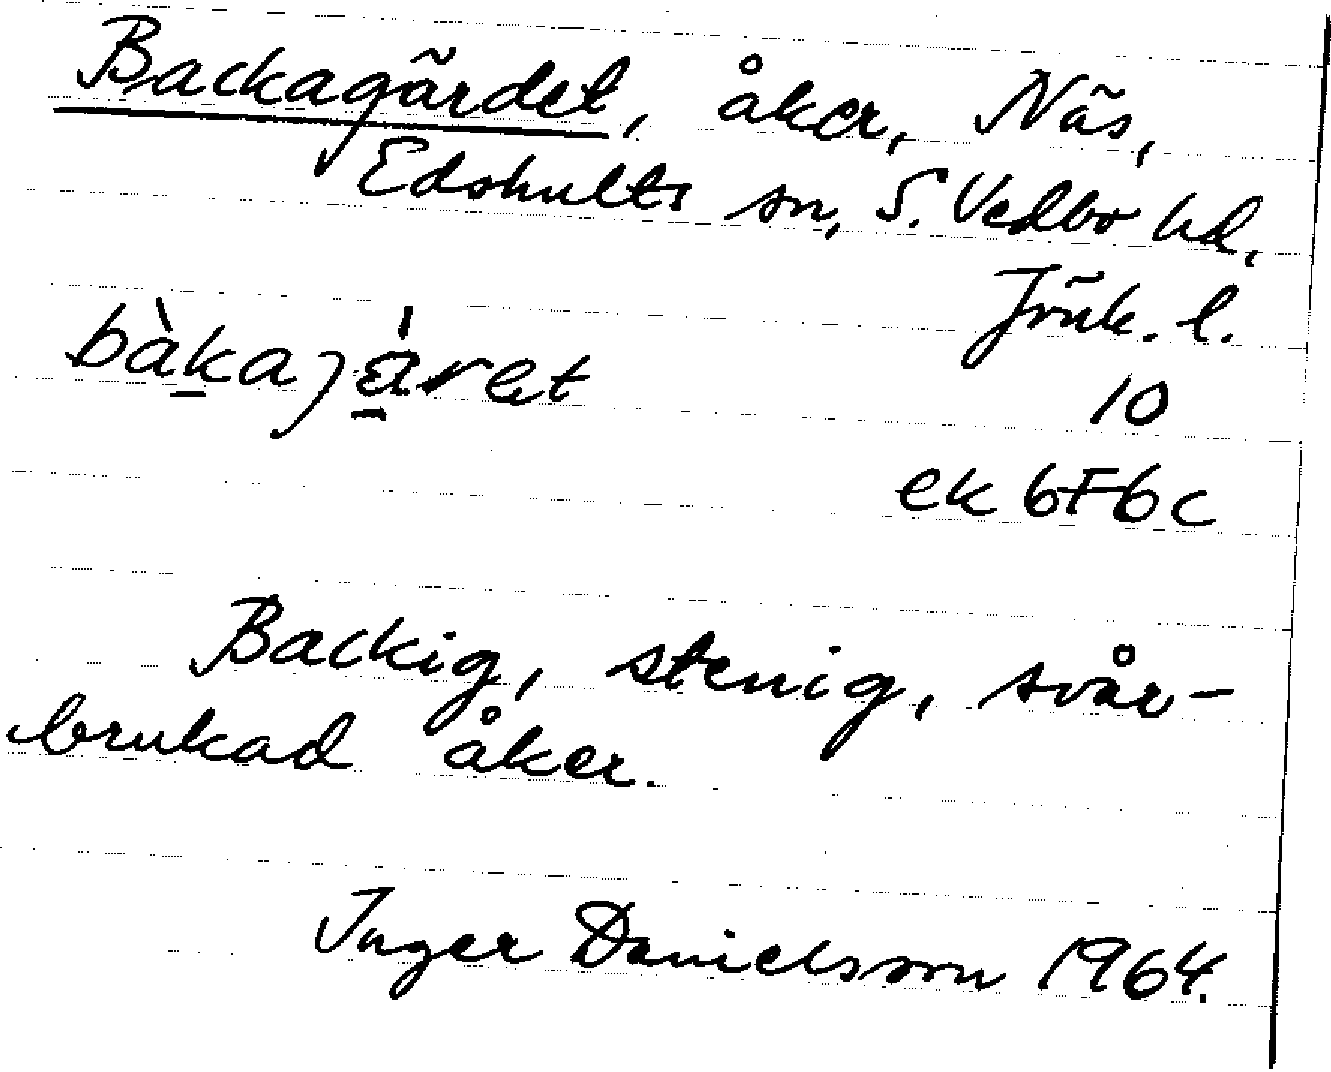 Backagärdet, åker, Näs,
Edshults sn, S. Vedbo hd,
Jönk. l.
bàkajäret
10
ek 6F6c
Backig, stenig, svår-
brukad åker.
Inger Danielsson 1964.